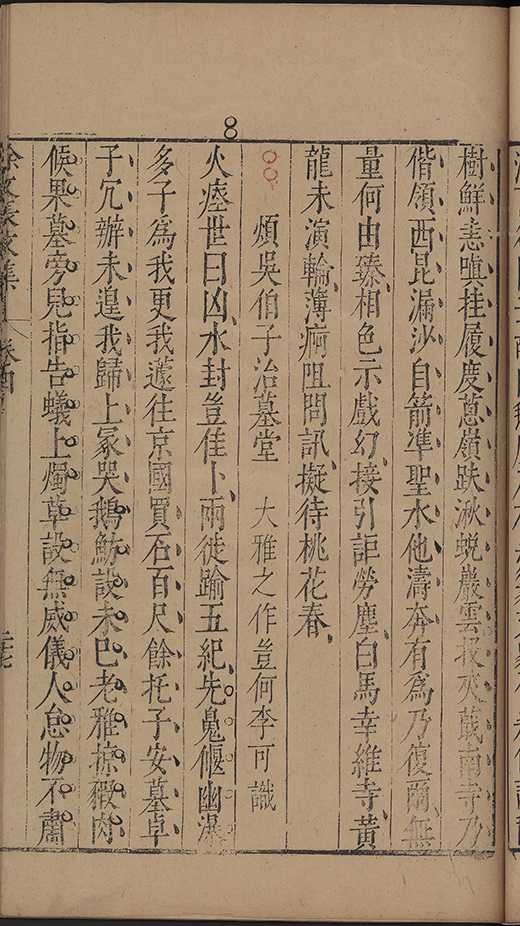 8
樹鮮恚嗔挂履度蔥嶺趺湫蛻巖雲
南寺乃
偕領西昆漏沙自箭準聖水他濤奔有爲乃復爾無
量何由臻相色示戲幻接引詎勞塵白馬幸維寺黃
龍未演輪薄痾阻問訊擬待桃花春
煩吳伯子治墓堂 大雅之作豈何李可識
火瘞世曰凶水封豈佳卜雨徙踰五紀先鬼偃幽瀑
多子爲我更我遽往京國買石百尺餘托子安墓卓
子冗辦未遑我歸上冢哭鵝魴設未巳老雅掠豰肉
候果墓旁兒指告蟻上燭草設無威儀人怠物不肅
集
卷四